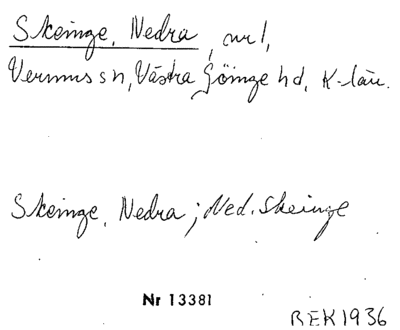 Skeinge, Nedra, nr 1,
Verums sn, Västra Göinge hd, K-län.
Skeinge, Nedra; Ned. Skeinge
Nr 13381
BEK 1936